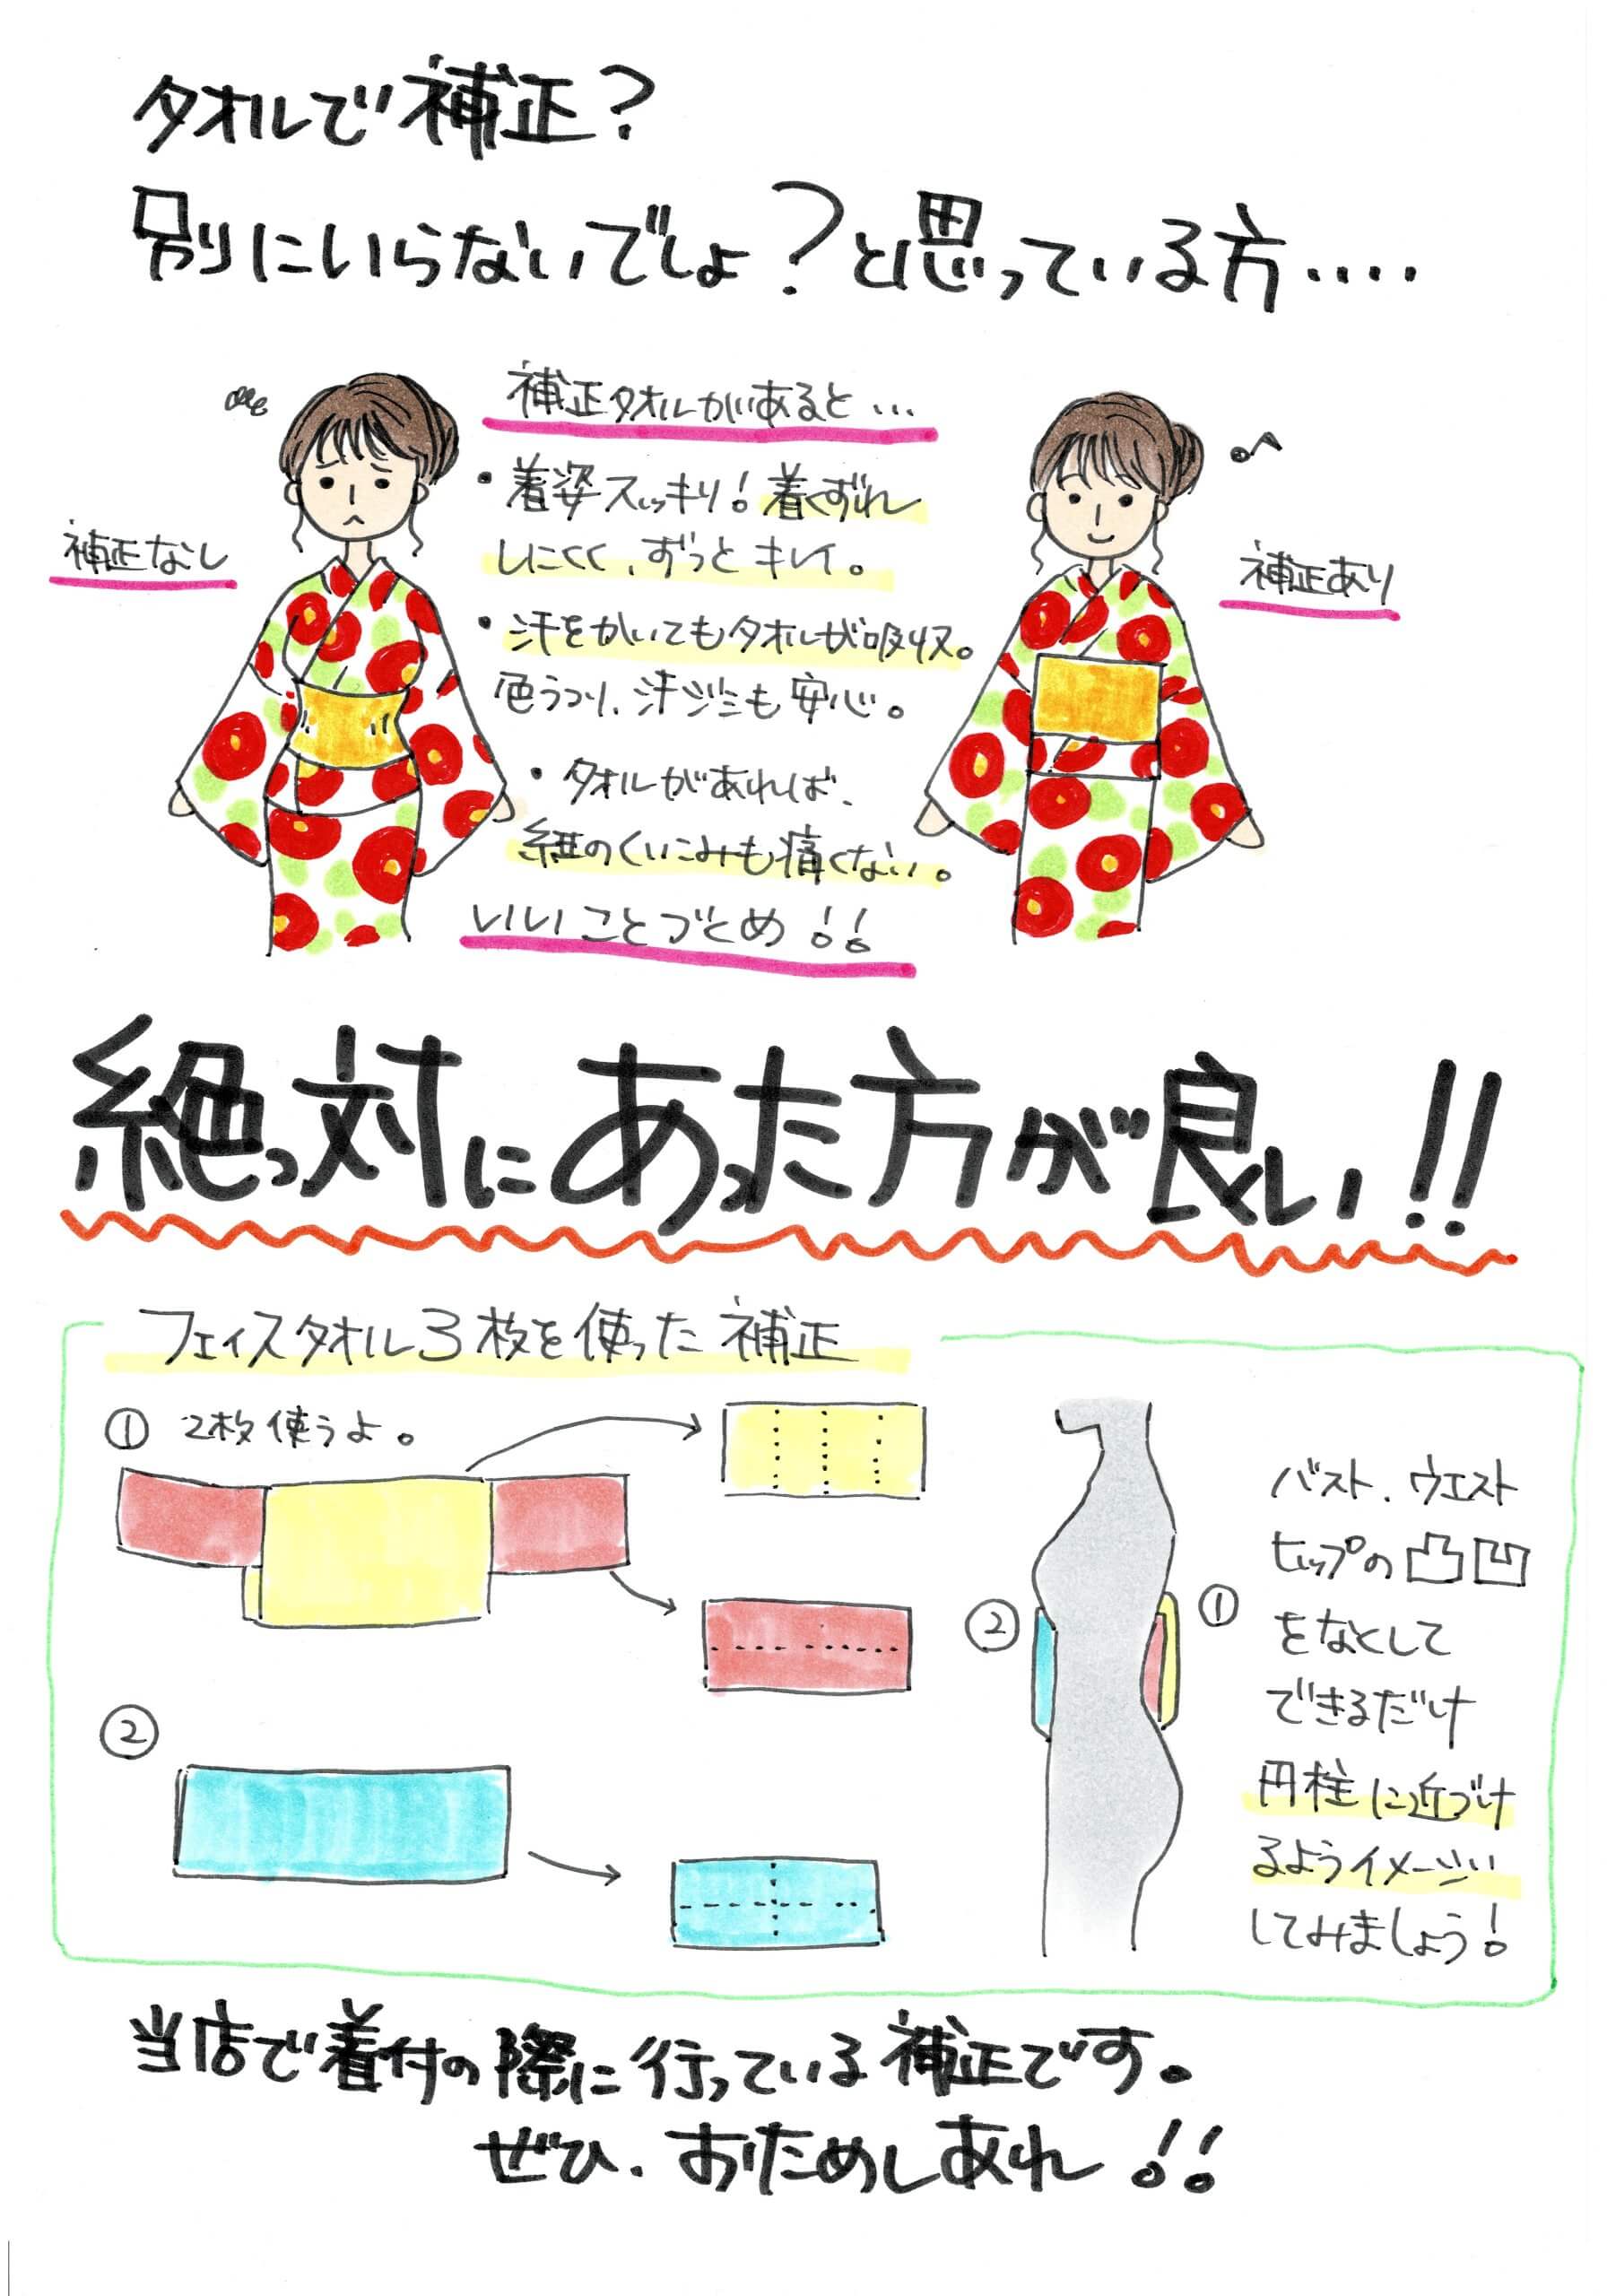 タオルで補正？
別にいらないでしょ？と思っている方‥‥
補正タオルがあると…
・着姿スッキリ！着くずれ
しにくく、ずっとキレイ。
補正なし
補正あり
・汗をかいてもタオルが吸収。
色うつり、汗ジミも安心。
・タオルがあれば、
紐のくいこみも痛くない。
いいことづくめ！！
絶っ対にあった方が良い！！
フェイスタオル3枚を使った補正
① 2枚使うよ。
②
②
①
バスト、ウエスト
ヒップの凸凹
をなくして
できるだけ
円柱に近づけ
るようイメージ
してみましょう！
当店で着付の際に行っている補正です。
ぜひ、おためしあれ！！